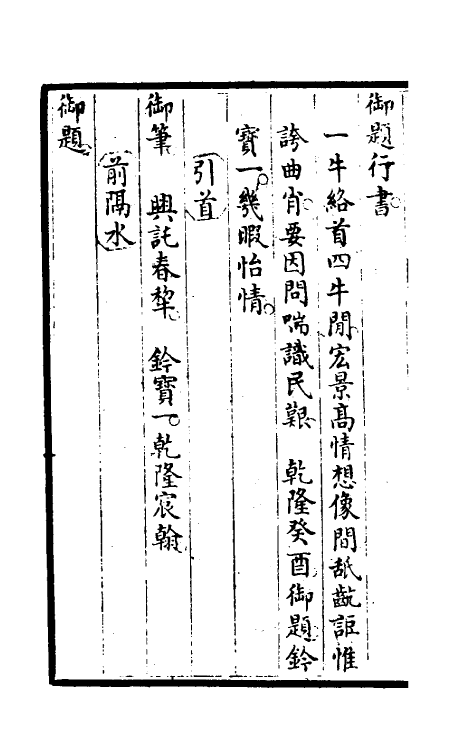 御題行書
一牛絡首四牛閒宏景高情想像間舐齕詎惟
誇曲肖要因問喘識民艱 乾隆癸酉御題鈐
寳一幾暇怡情
引首
御筆 興託春犂 鈐寳一乾隆宸翰
前隔水
御題